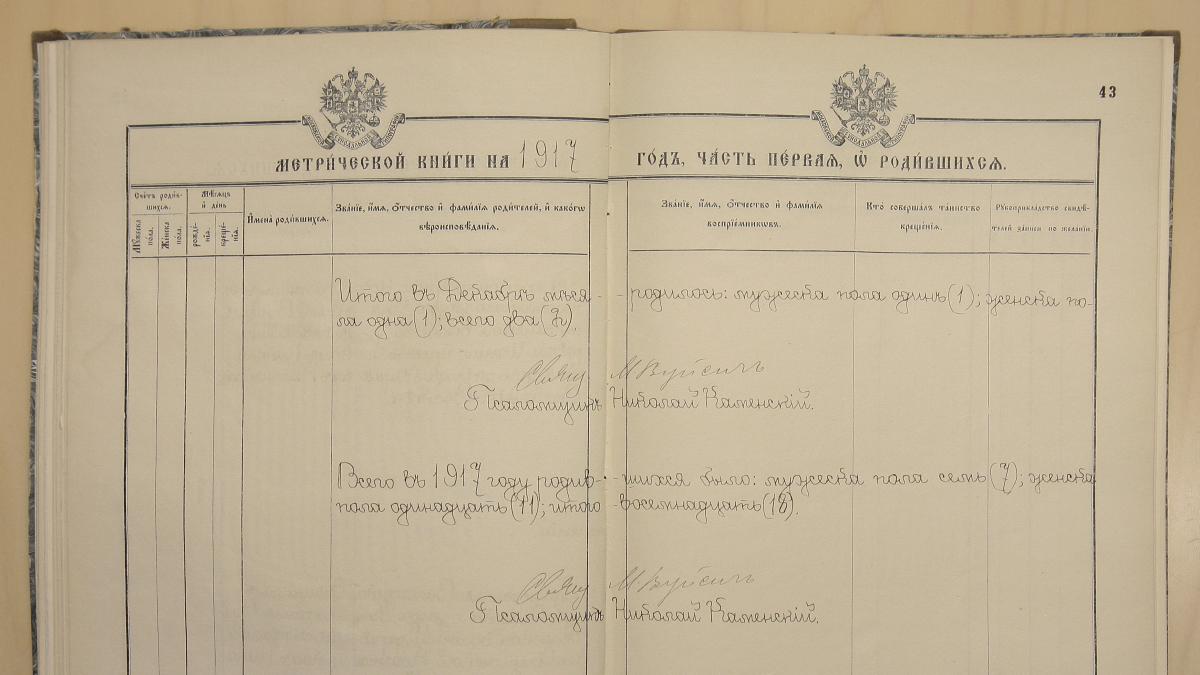 43
МЕТРИ́ЧЕСКОЙ КНИ́ГИ НА 1917 ГО́ДЪ, ЧА́СТЬ ПЕ́РВАЯ, Ѽ РОДИ́ВШИХСѦ.
Сче́тъ роди́в-
шихся.
Му́жеска
пола.
Же́нска
пола.
Мѣ́сяцъ
и҆ день
рожде́-
нїя.
креще́-
нїя.
И҆мена̀ роди́вшихся.
Зва́нїе, и҆́мя, ѻ҆́тчество и҆ фами́лїя роди́телей, и҆ како́гѡ
вѣроисповѣ́данїя.
Зва́нїе, и҆́мя, ѻ҆́тчество и҆ фами́лїя
воспрїе́мникѡвъ.
Кто̀ соверша́лъ та́инство
креще́нїя.
Рꙋкоприкла́дство свидѣ́-
телей за́писи по жела́нїю.
Итого въ Декабрѣ мѣся- - родилось: мужеска пола одинъ (1); женска по-
ла одна (1); всего два (2).
Свящ М Вуйсичъ
Псаломщикъ Николай Каменскій.
Всего въ 1917 году родив- - шихся было: мужеска пола семь (7); женска
пола одинадцать (11); итого - восемнадцать (18).
Свящ М Вуйсичъ
Псаломщикъ Николай Каменскій.